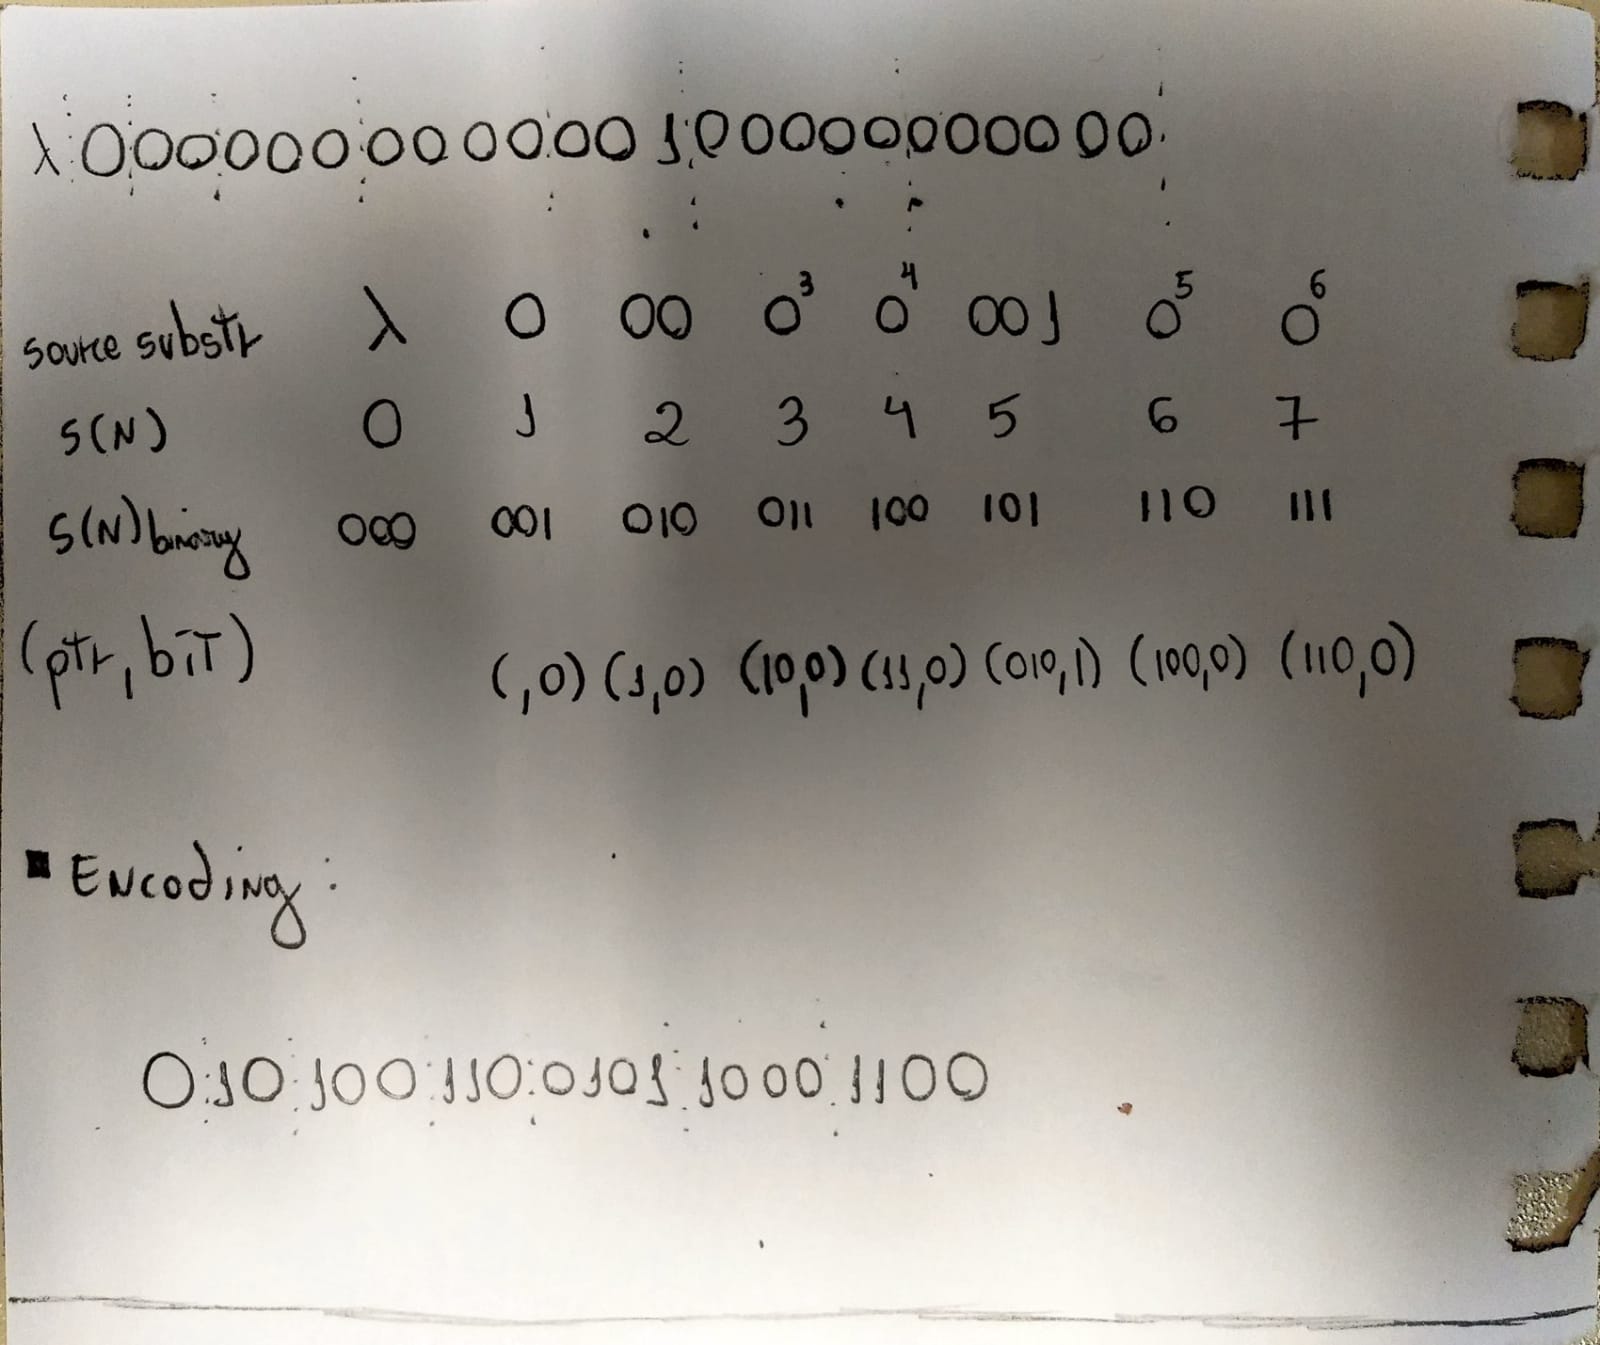 λ 000000000000 1 00000000000
source substr λ 0 00 0³ 0⁴ 001 0⁵ 0⁶
S(N) 0 1 2 3 4 5 6 7
S(N) binary 000 001 010 011 100 101 110 111
(ptr, bit) (,0) (1,0) (10,0) (11,0) (010,1) (100,0) (110,0)
▪ Encoding:
0:10:100:110:0101:1000:1100